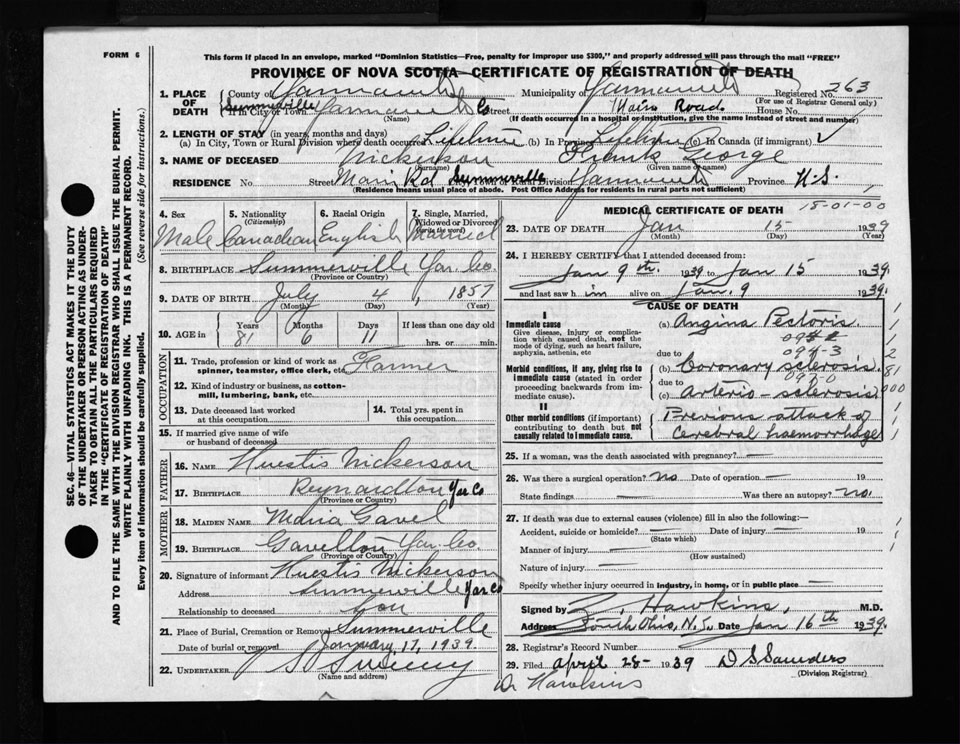 FORM 6
This form if placed in an envelope, marked "Dominion Statistics—Free, penalty for improper use $300," and properly addressed will pass through the mail "FREE"
PROVINCE OF NOVA SCOTIA—CERTIFICATE OF REGISTRATION OF DEATH
SEC. 46—VITAL STATISTICS ACT MAKES IT THE DUTY
OF THE UNDERTAKER OR PERSON ACTING AS UNDER-
TAKER TO OBTAIN ALL THE PARTICULARS REQUIRED
IN THE "CERTIFICATE OF REGISTRATION OF DEATH"
AND TO FILE THE SAME WITH THE DIVISION REGISTRAR WHO SHALL ISSUE THE BURIAL PERMIT.
WRITE PLAINLY WITH UNFADING INK. THIS IS A PERMANENT RECORD.
Every item of information should be carefully supplied. (See reverse side for instructions.)
1. PLACE OF DEATH County of Yarmouth Municipality of Yarmouth Registered No. 263
(For use of Registrar General only)
Summerville If in City or Town Yarmouth Co Street Main Road House No.
(Name) (If death occurred in a hospital or institution, give the name instead of street and number)
2. LENGTH OF STAY (in years, months and days)
(a) In City, Town or Rural Division where death occurred Lifetime (b) In Province Lifetime (c) In Canada (if immigrant)
3. NAME OF DECEASED Nickerson Frank George
(Surname) (Given name or names)
RESIDENCE No. Street Main Rd City, Town or Rural Division Summerville Yarmouth Province N.S.
(Residence means usual place of abode. Post Office Address for Residents in rural parts not sufficient)
4. Sex 5. Nationality (Citizenship) 6. Racial Origin 7. Single, Married, Widowed or Divorced (write the word)
Male Canadian English Married
8. BIRTHPLACE Summerville Yar. Co.
(Province or Country)
9. DATE OF BIRTH July 4, 1857
(Month) (Day) (Year)
10. AGE in Years Months Days If less than one day
81 6 11 hrs. or min.
OCCUPATION
11. Trade, profession or kind of work as spinner, teamster, office clerk, etc. Farmer
12. Kind of industry or business, as cotton-mill, lumbering, bank, etc.
13. Date deceased last worked at this occupation
14. Total yrs. spent in this occupation
15. If married give name of wife or husband of deceased
FATHER
16. NAME Huestis Nickerson
17. BIRTHPLACE Reynardton Yar Co
(Province or Country)
MOTHER
18. MAIDEN NAME Maria Gavel
19. BIRTHPLACE Gavelton Yar. Co.
(Province or Country)
20. Signature of informant Huestis Nickerson
Address Summerville Yar Co
Relationship to deceased Son
21. Place of Burial, Cremation or Removal Summerville
Date of burial or removal January 17, 1939.
22. UNDERTAKER Sweeny
(Name and address)
MEDICAL CERTIFICATE OF DEATH 18-01-00
23. DATE OF DEATH Jan 15 1939
(Month) (Day) (Year)
24. I HEREBY CERTIFY that I attended deceased from:
Jan 9th 1939 to Jan 15 1939.
and last saw him alive on Jan. 9 1939.
CAUSE OF DEATH
I
Immediate cause
Give disease, injury or complication which caused death, not the mode of dying, such as heart failure, asphyxia, asthenia, etc
(a) Angina Pectoris.
due to
Morbid conditions, if any, giving rise to immediate cause (stated in order proceeding backwards from immediate cause).
(b) Coronary sclerosis
due to
(c) Arterio-sclerosis
II
Other morbid conditions (if important) contributing to death but not causally related to immediate cause.
Previous attack of
Cerebral haemorrhage
25. If a woman, was the death associated with pregnancy? —
26. Was there a surgical operation? no Date of operation — 19
State findings — Was there an autopsy? no.
27. If death was due to external causes (violence) fill in also the following:—
Accident, suicide or homicide? — Date of injury — 19
(State which)
Manner of injury —
(How sustained)
Nature of injury —
Specify whether injury occurred in industry, in home, or in public place —
Signed by Hawkins, M.D.
Address South Ohio, N.S. Date Jan 16th 1939.
28. Registrar's Record Number
29. Filed April 28- 1939 D S Saunders
(Division Registrar)
Dr Hawkins